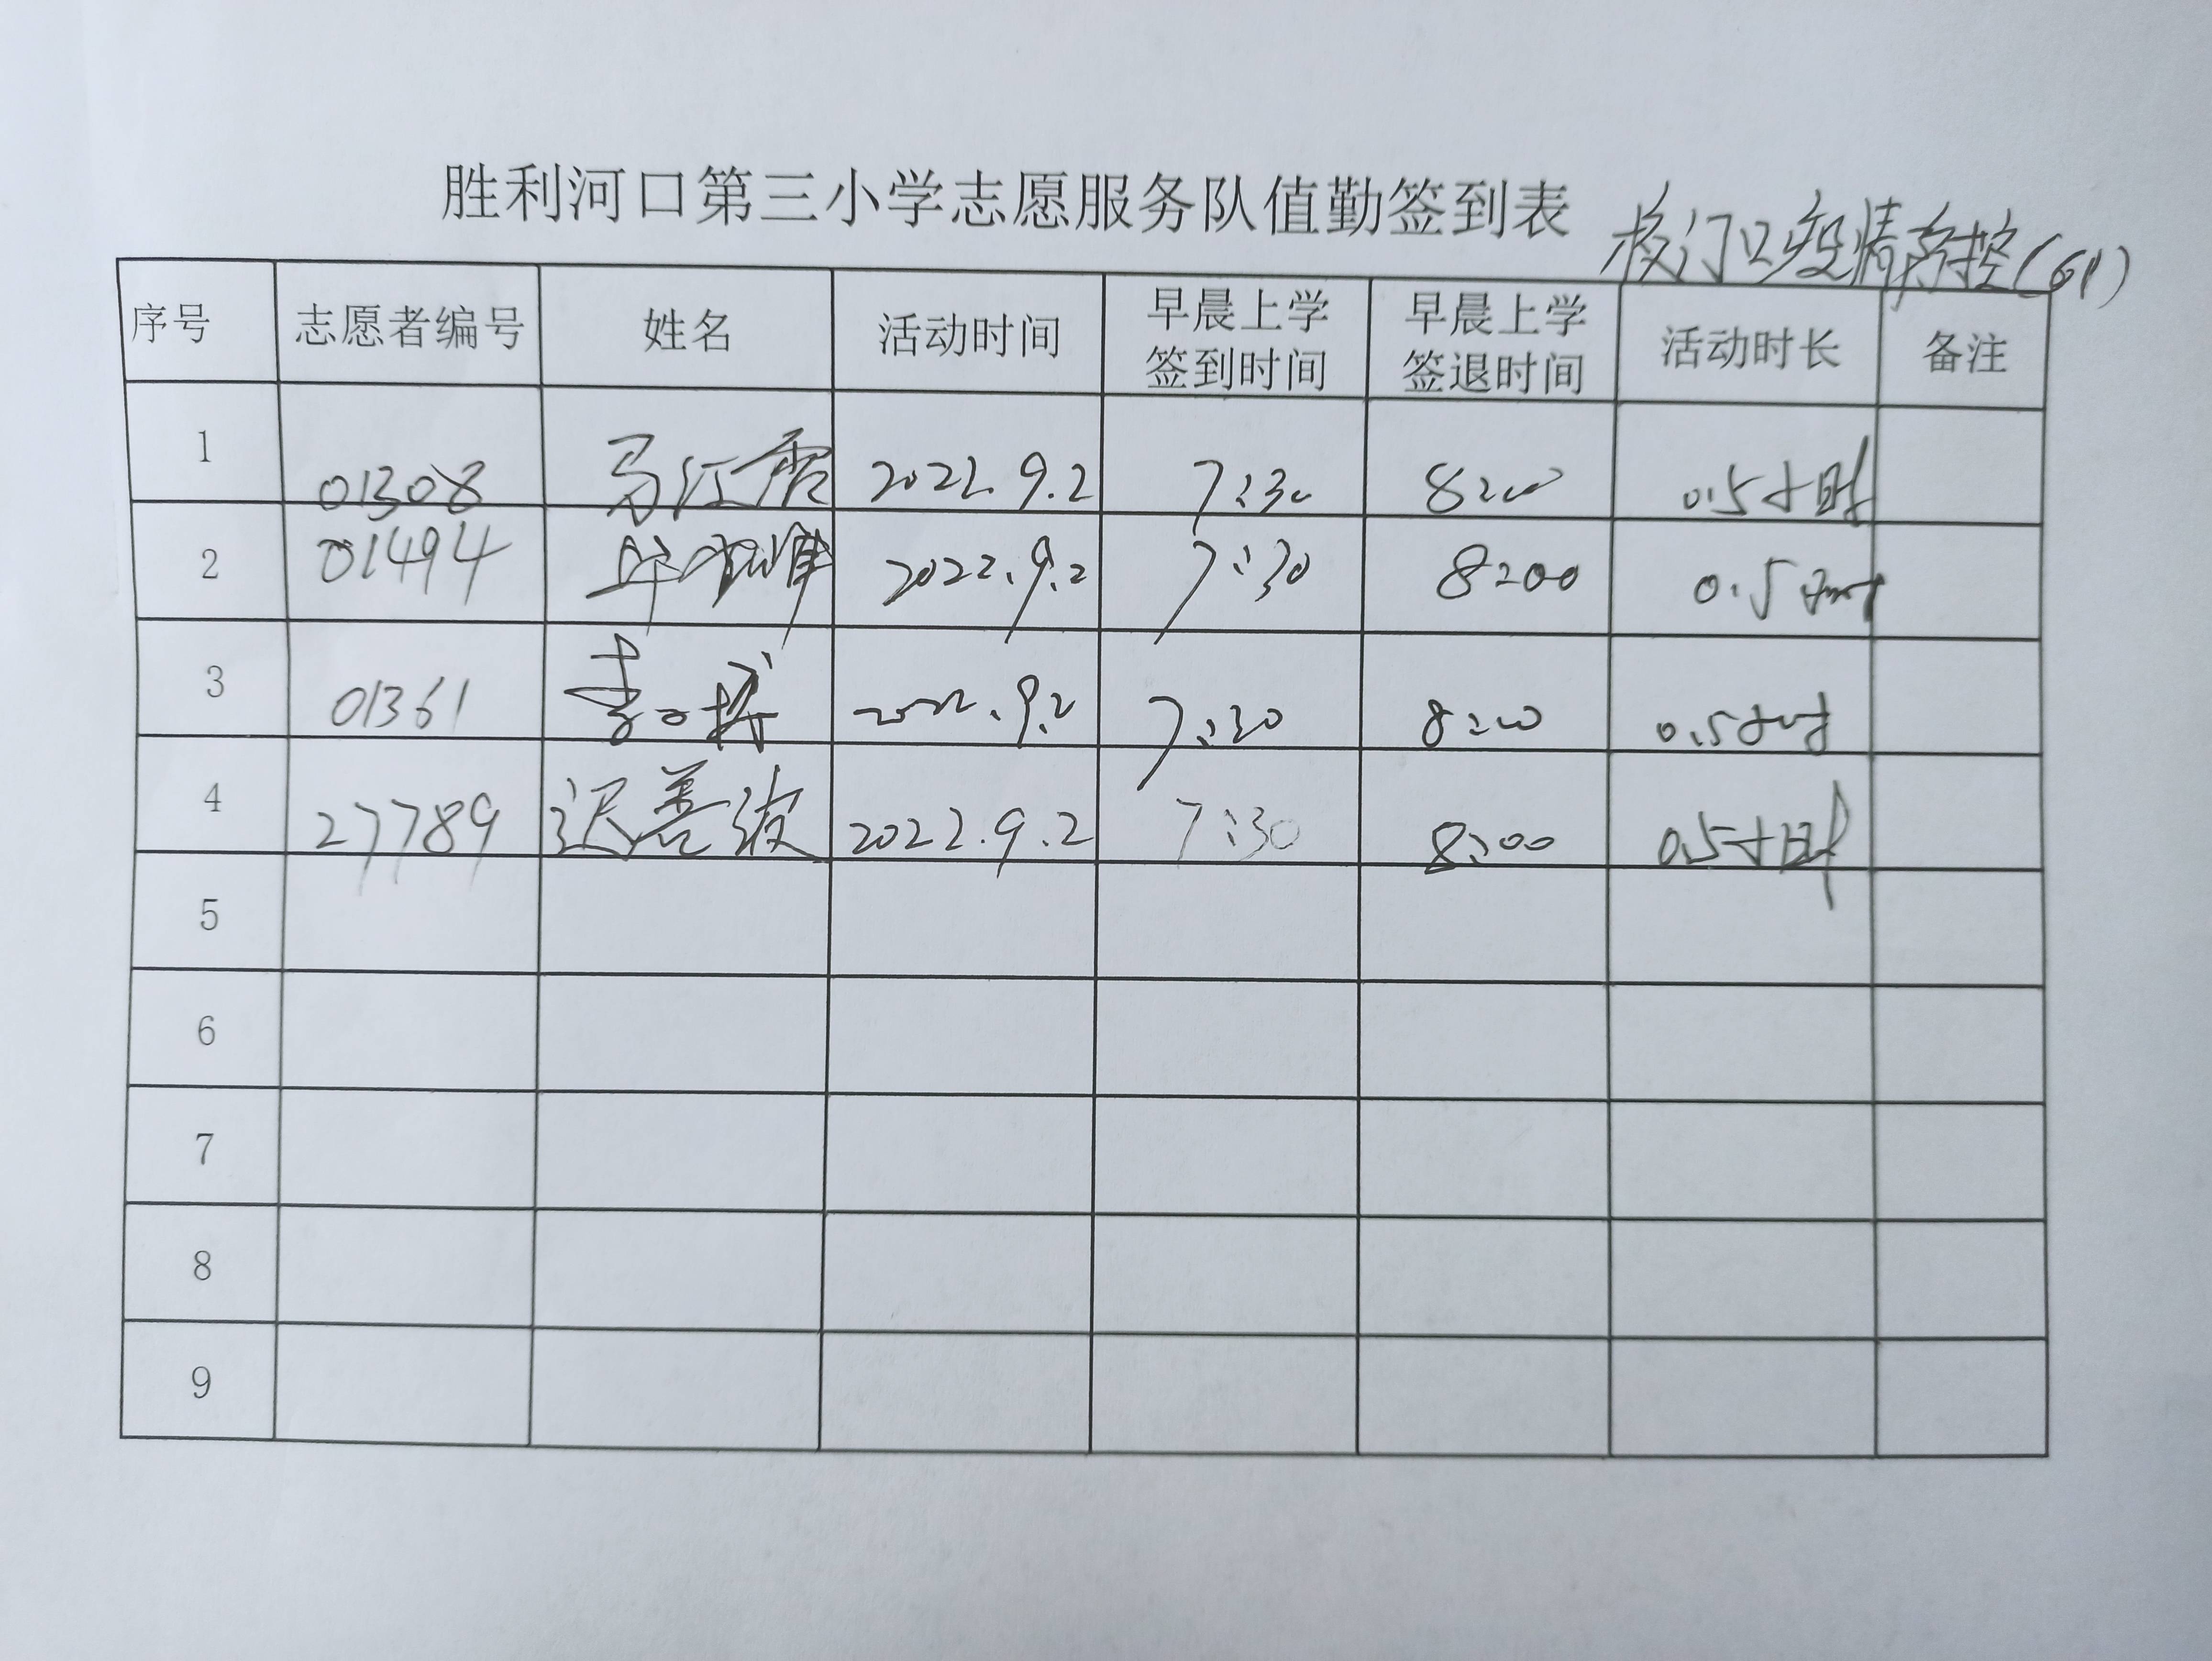 胜利河口第三小学志愿服务队值勤签到表 校门口疫情防控(61)
序号 志愿者编号 姓名 活动时间 早晨上学签到时间 早晨上学签退时间 活动时长 备注
1 01308 马红霞 2022.9.2 7:30 8:00 0.5小时
2 01494 2022.9.2 7:30 8:00 0.5小时
3 01361 2022.9.2 7:30 8:00 0.5小时
4 27789 迟善波 2022.9.2 7:30 8:00 0.5小时
5
6
7
8
9